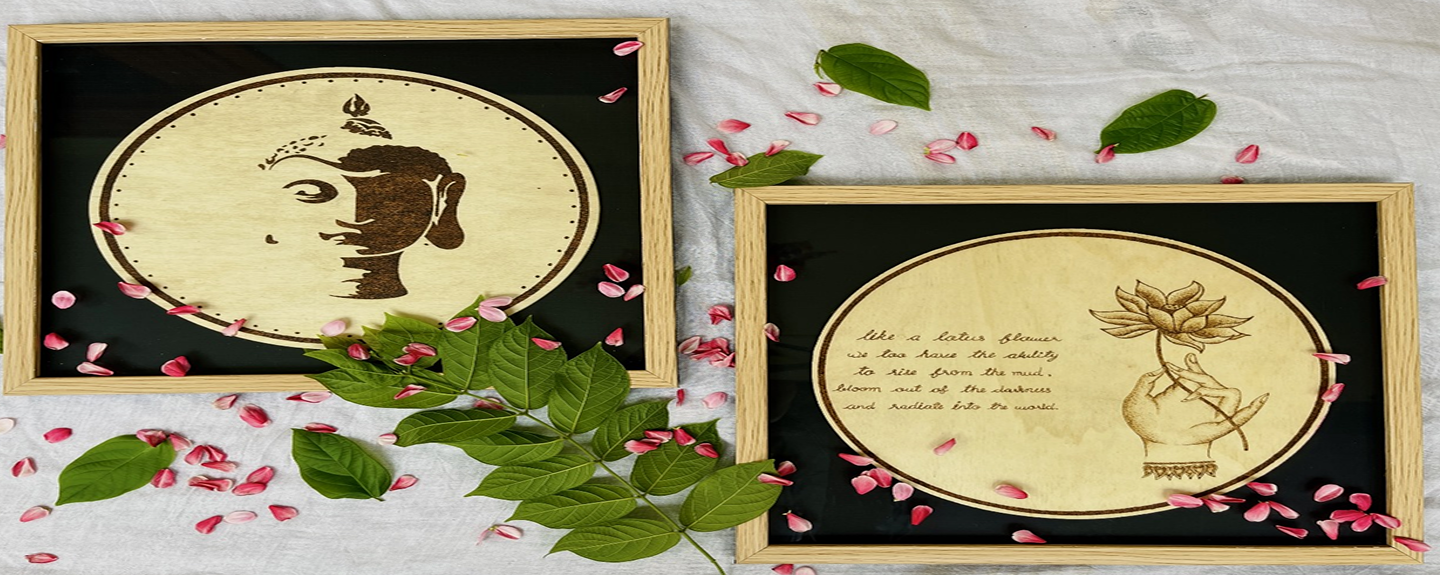 like a lotus flower
we too have the ability
to rise from the mud,
bloom out of the darkness
and radiate into the world.